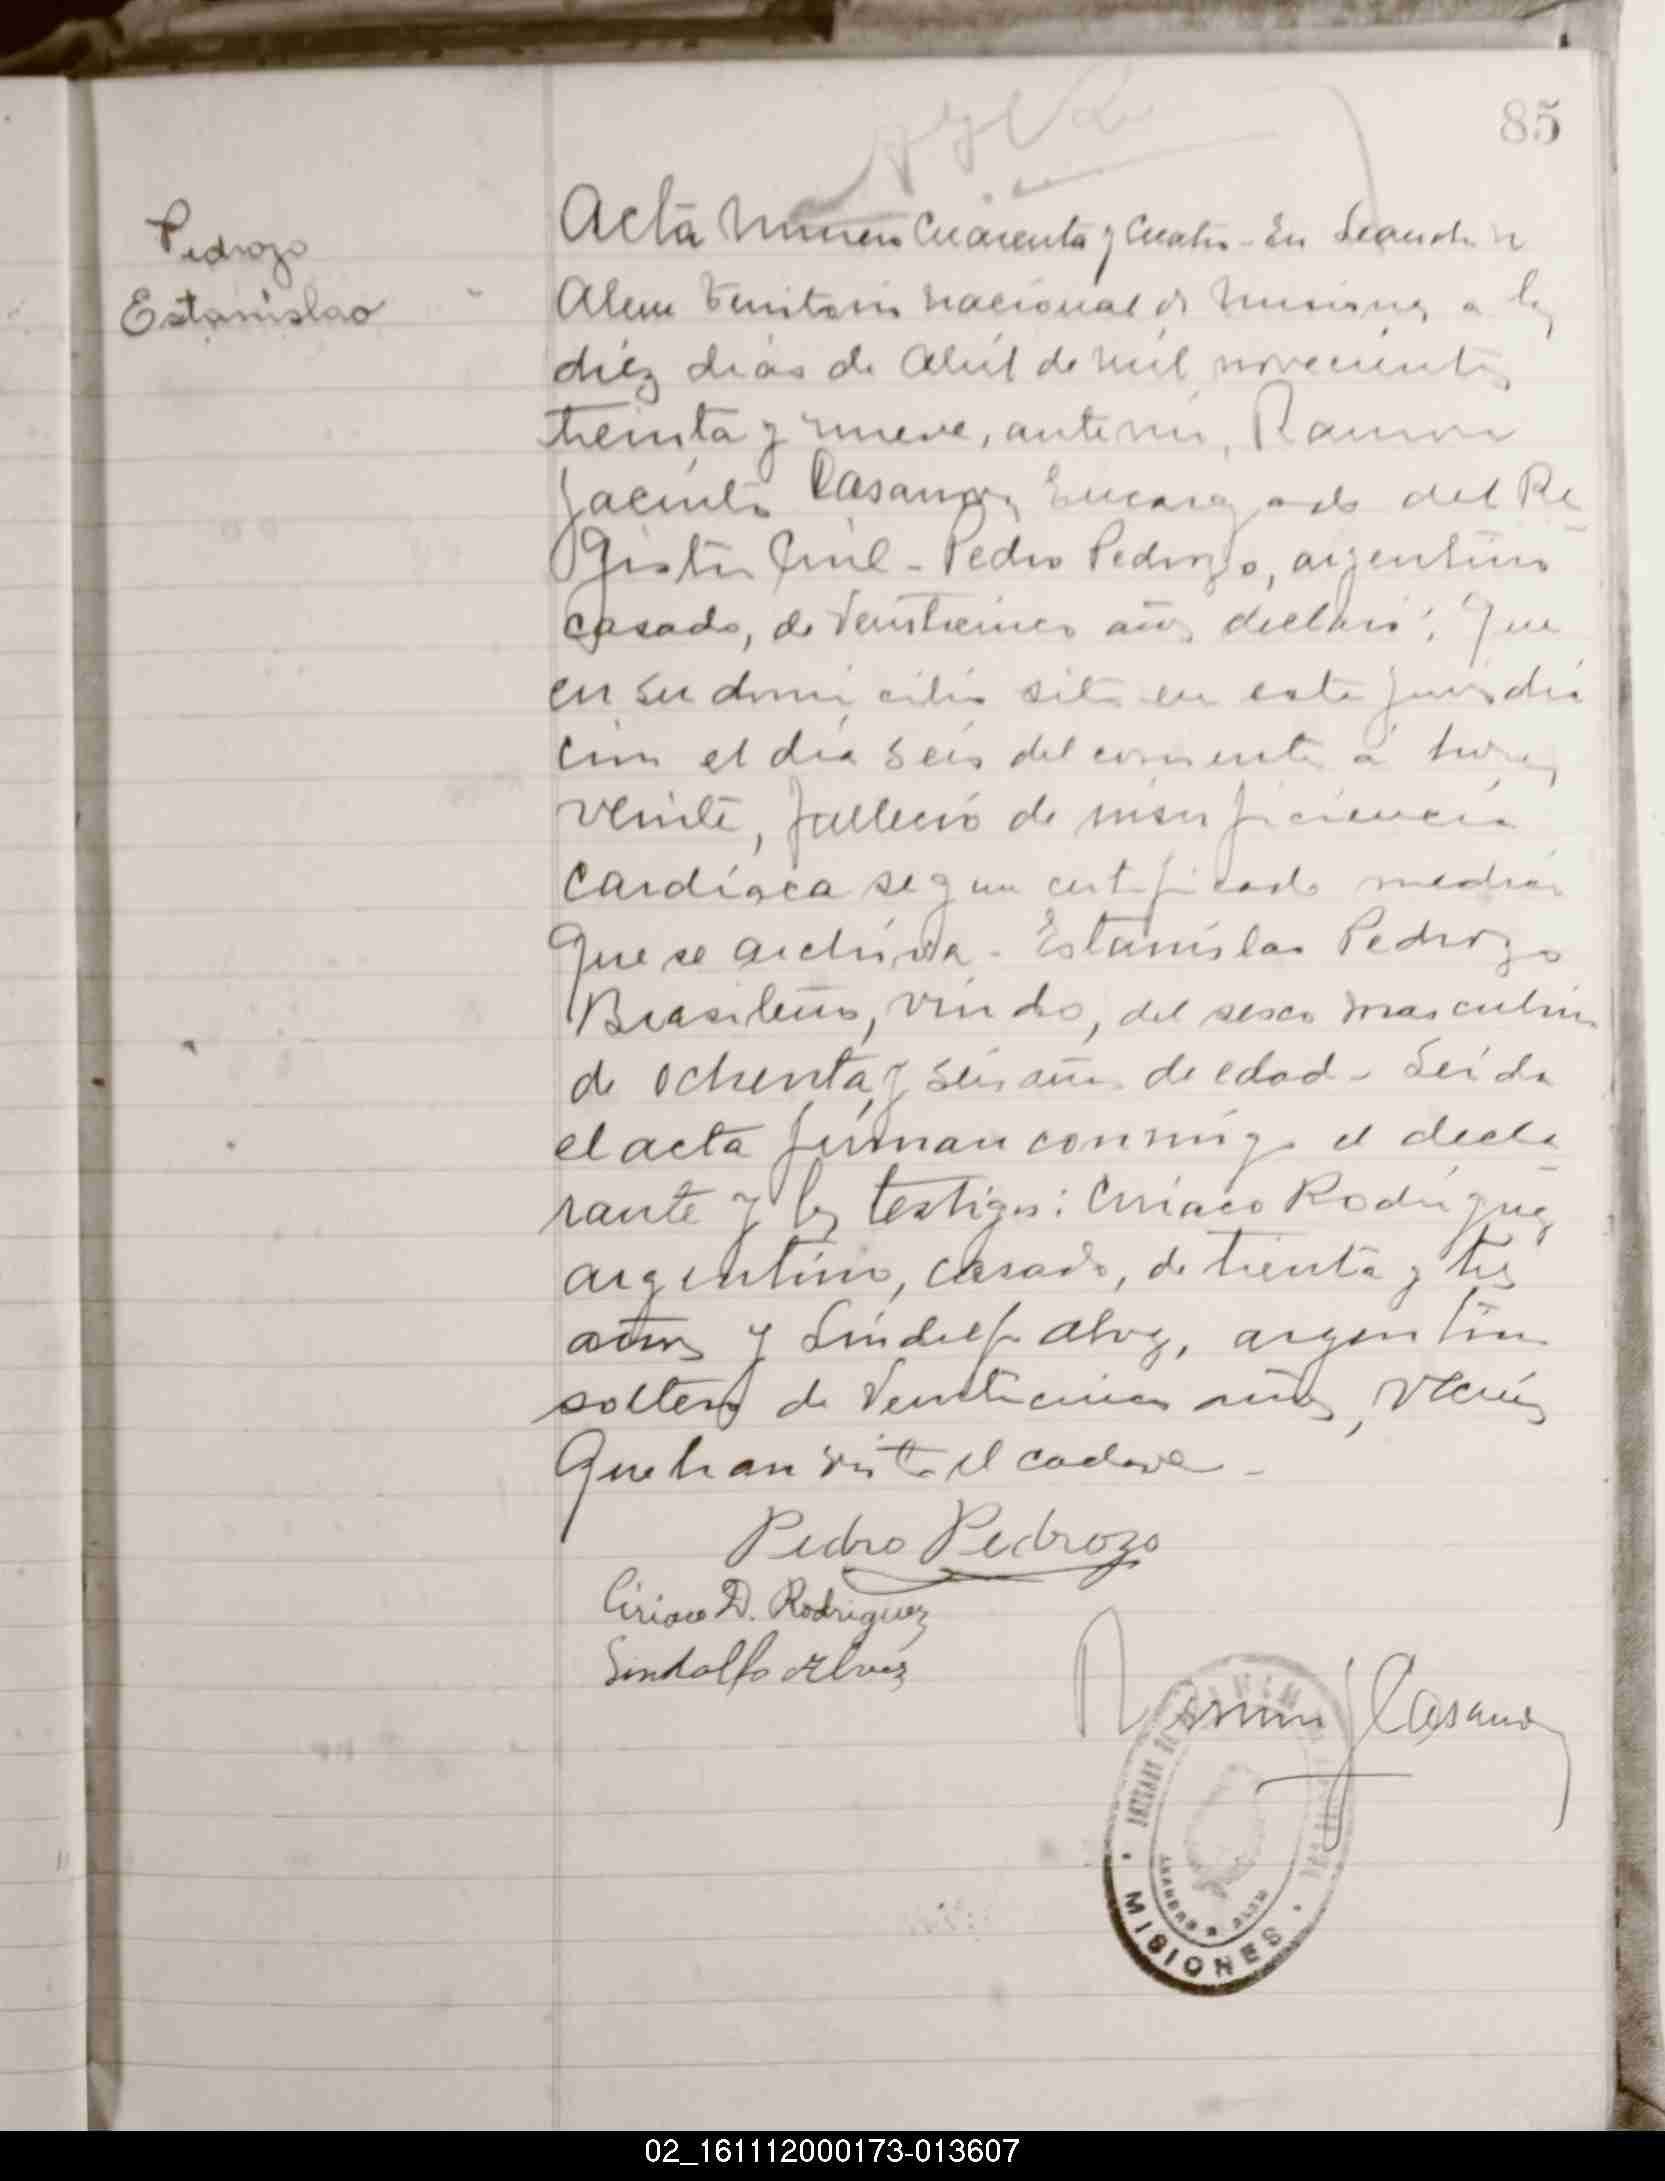 85
Pedrozo
Estanislao
Acta Numero Cuarenta y Cuatro - En Leandro N
Alem Territorio Nacional de Misiones a los
diéz dias de Abril de mil novecientos
treinta y nueve, ante mi, Ramon
Jacinto Casanova Encargado del Re
gistro Civil - Pedro Pedrozo, argentino
casado, de Veinticinco años declaró: Que
en su domicilio sito en esta jurisdic
cion el dia seis del corriente a horas
veinte, falleció de insuficiencia
cardíaca segun certificado medico
que se archiva - Estanislao Pedrozo
Brasileño, viudo, del sexo masculino
de ochenta y seis años de edad - Leida
el acta firman conmigo el decla
rante y los testigos: Ciriaco Rodriguez
argentino, casado, de treinta y tres
años y Lindolfo Alvez, argentino
soltero de Veinticinco años, vecinos
Que han visto el cadaver -
Pedro Pedrozo
Ciriaco D. Rodriguez
Lindolfo Alvez
Ramon J Casanova
MISIONES
02_161112000173-013607